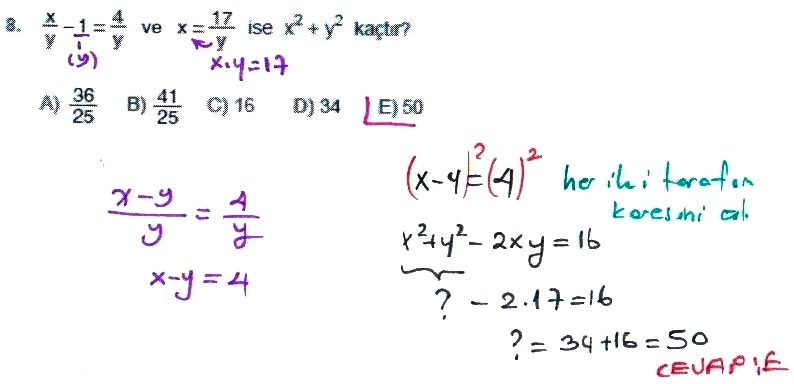 8. x/y - 1 = 4/y ve x = 17/y ise x² + y² kaçtır?
(y)
x.y = 17
A) 36/25 B) 41/25 C) 16 D) 34 E) 50
(x-y)² = (4)² her iki tarafın
karesini al.
x-y/y = 4/y
x²+y² - 2xy = 16
x-y = 4
? - 2.17 = 16
? = 34 + 16 = 50
CEVAP: E